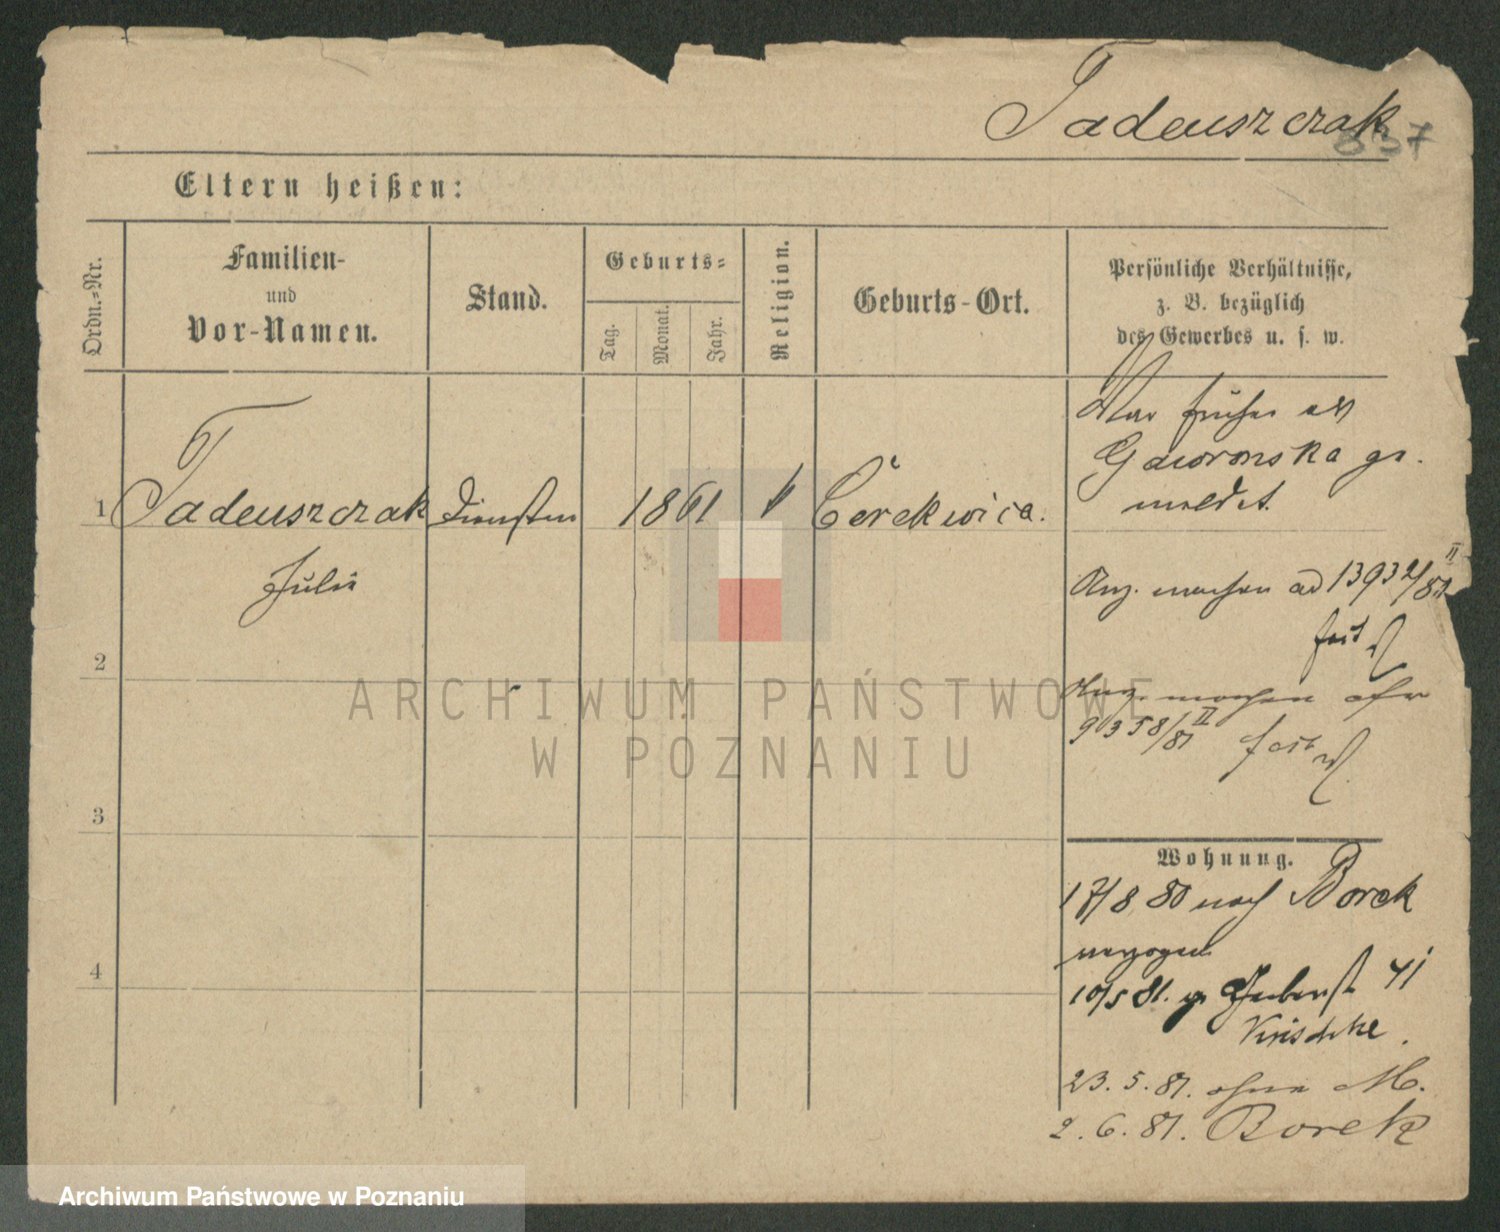 Tadeuszczak
837
Eltern heißen:
Ordn.-Nr.
Familien-
und
Vor-Namen.
Stand.
Geburts-
Tag.
Monat.
Jahr.
Religion.
Geburts-Ort.
Persönliche Verhältnisse,
z. B. bezüglich
des Gewerbes u. s. w.
War früher als
Gaworonska ge-
meldet.
1 Tadeuszczak 1861 k Cerekwica.
Anz. machen ad 13932/81 II
2
ARCHIWUM PAŃSTWOWE
W POZNANIU
Anz. machen
9358/81 II
3
Wohnung.
17/8 80 nach Borek
verzogen
4
10/5 81. 41
23. 5. 81. ohne M.
2. 6. 81. Borek
Archiwum Państwowe w Poznaniu